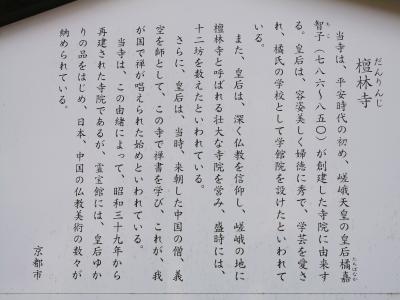 檀林寺
だんりんじ
当寺は、平安時代の初め、嵯峨天皇の皇后橘嘉
たちばなか
智子（七八六～八五〇）が創建した寺院に由来す
ちこ
る。皇后は、容姿美しく婦徳に秀で、学芸を愛さ
れ、橘氏の学校として学館院を設けたといわれて
いる。
また、皇后は、深く仏教を信仰し、嵯峨の地に
檀林寺と呼ばれる壮大な寺院を営み、盛時には、
十二坊を数えたといわれている。
さらに、皇后は、当時、来朝した中国の僧、義
空を師として、この寺で禅書を学び、これが、我
が国で禅が唱えられた始めといわれている。
当寺は、この由緒によって、昭和三十九年から
再建された寺院であるが、霊宝館には、皇后ゆか
りの品をはじめ、日本、中国の仏教美術の数々が
納められている。
京都市